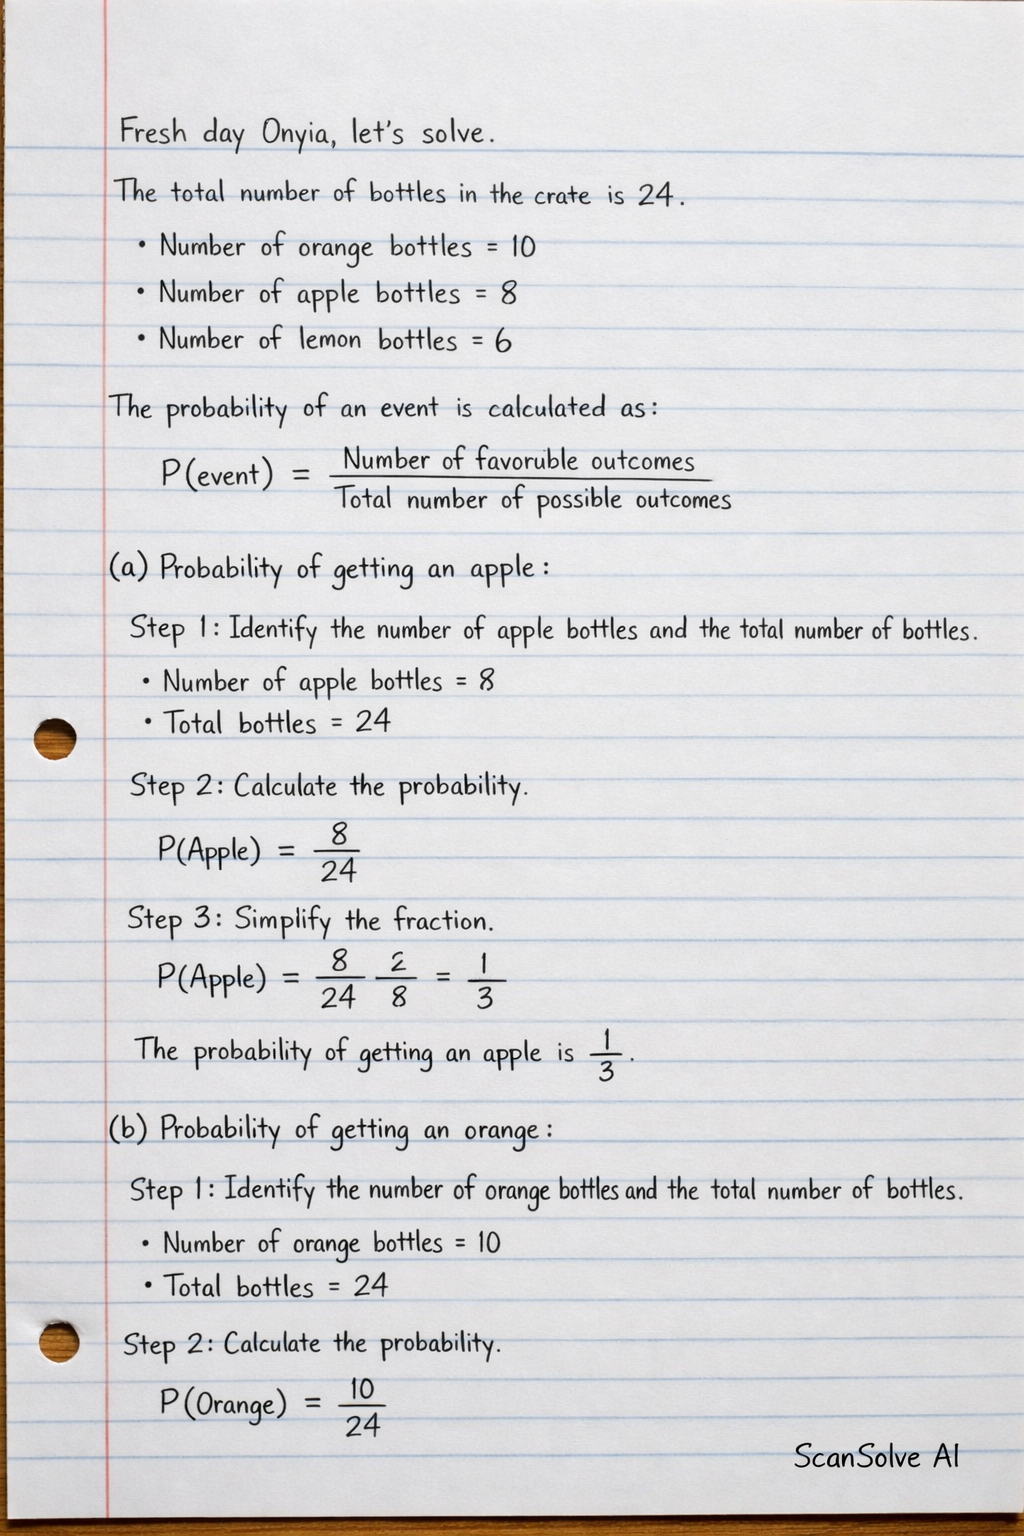 Fresh day Onyia, let's solve.
The total number of bottles in the crate is 24.
• Number of orange bottles = 10
• Number of apple bottles = 8
• Number of lemon bottles = 6
The probability of an event is calculated as:
P(event) = Number of favoruble outcomes / Total number of possible outcomes
(a) Probability of getting an apple:
Step 1: Identify the number of apple bottles and the total number of bottles.
• Number of apple bottles = 8
• Total bottles = 24
Step 2: Calculate the probability.
P(Apple) = 8/24
Step 3: Simplify the fraction.
P(Apple) = 8/24 2/8 = 1/3
The probability of getting an apple is 1/3.
(b) Probability of getting an orange:
Step 1: Identify the number of orange bottles and the total number of bottles.
• Number of orange bottles = 10
• Total bottles = 24
Step 2: Calculate the probability.
P(Orange) = 10/24
ScanSolve AI